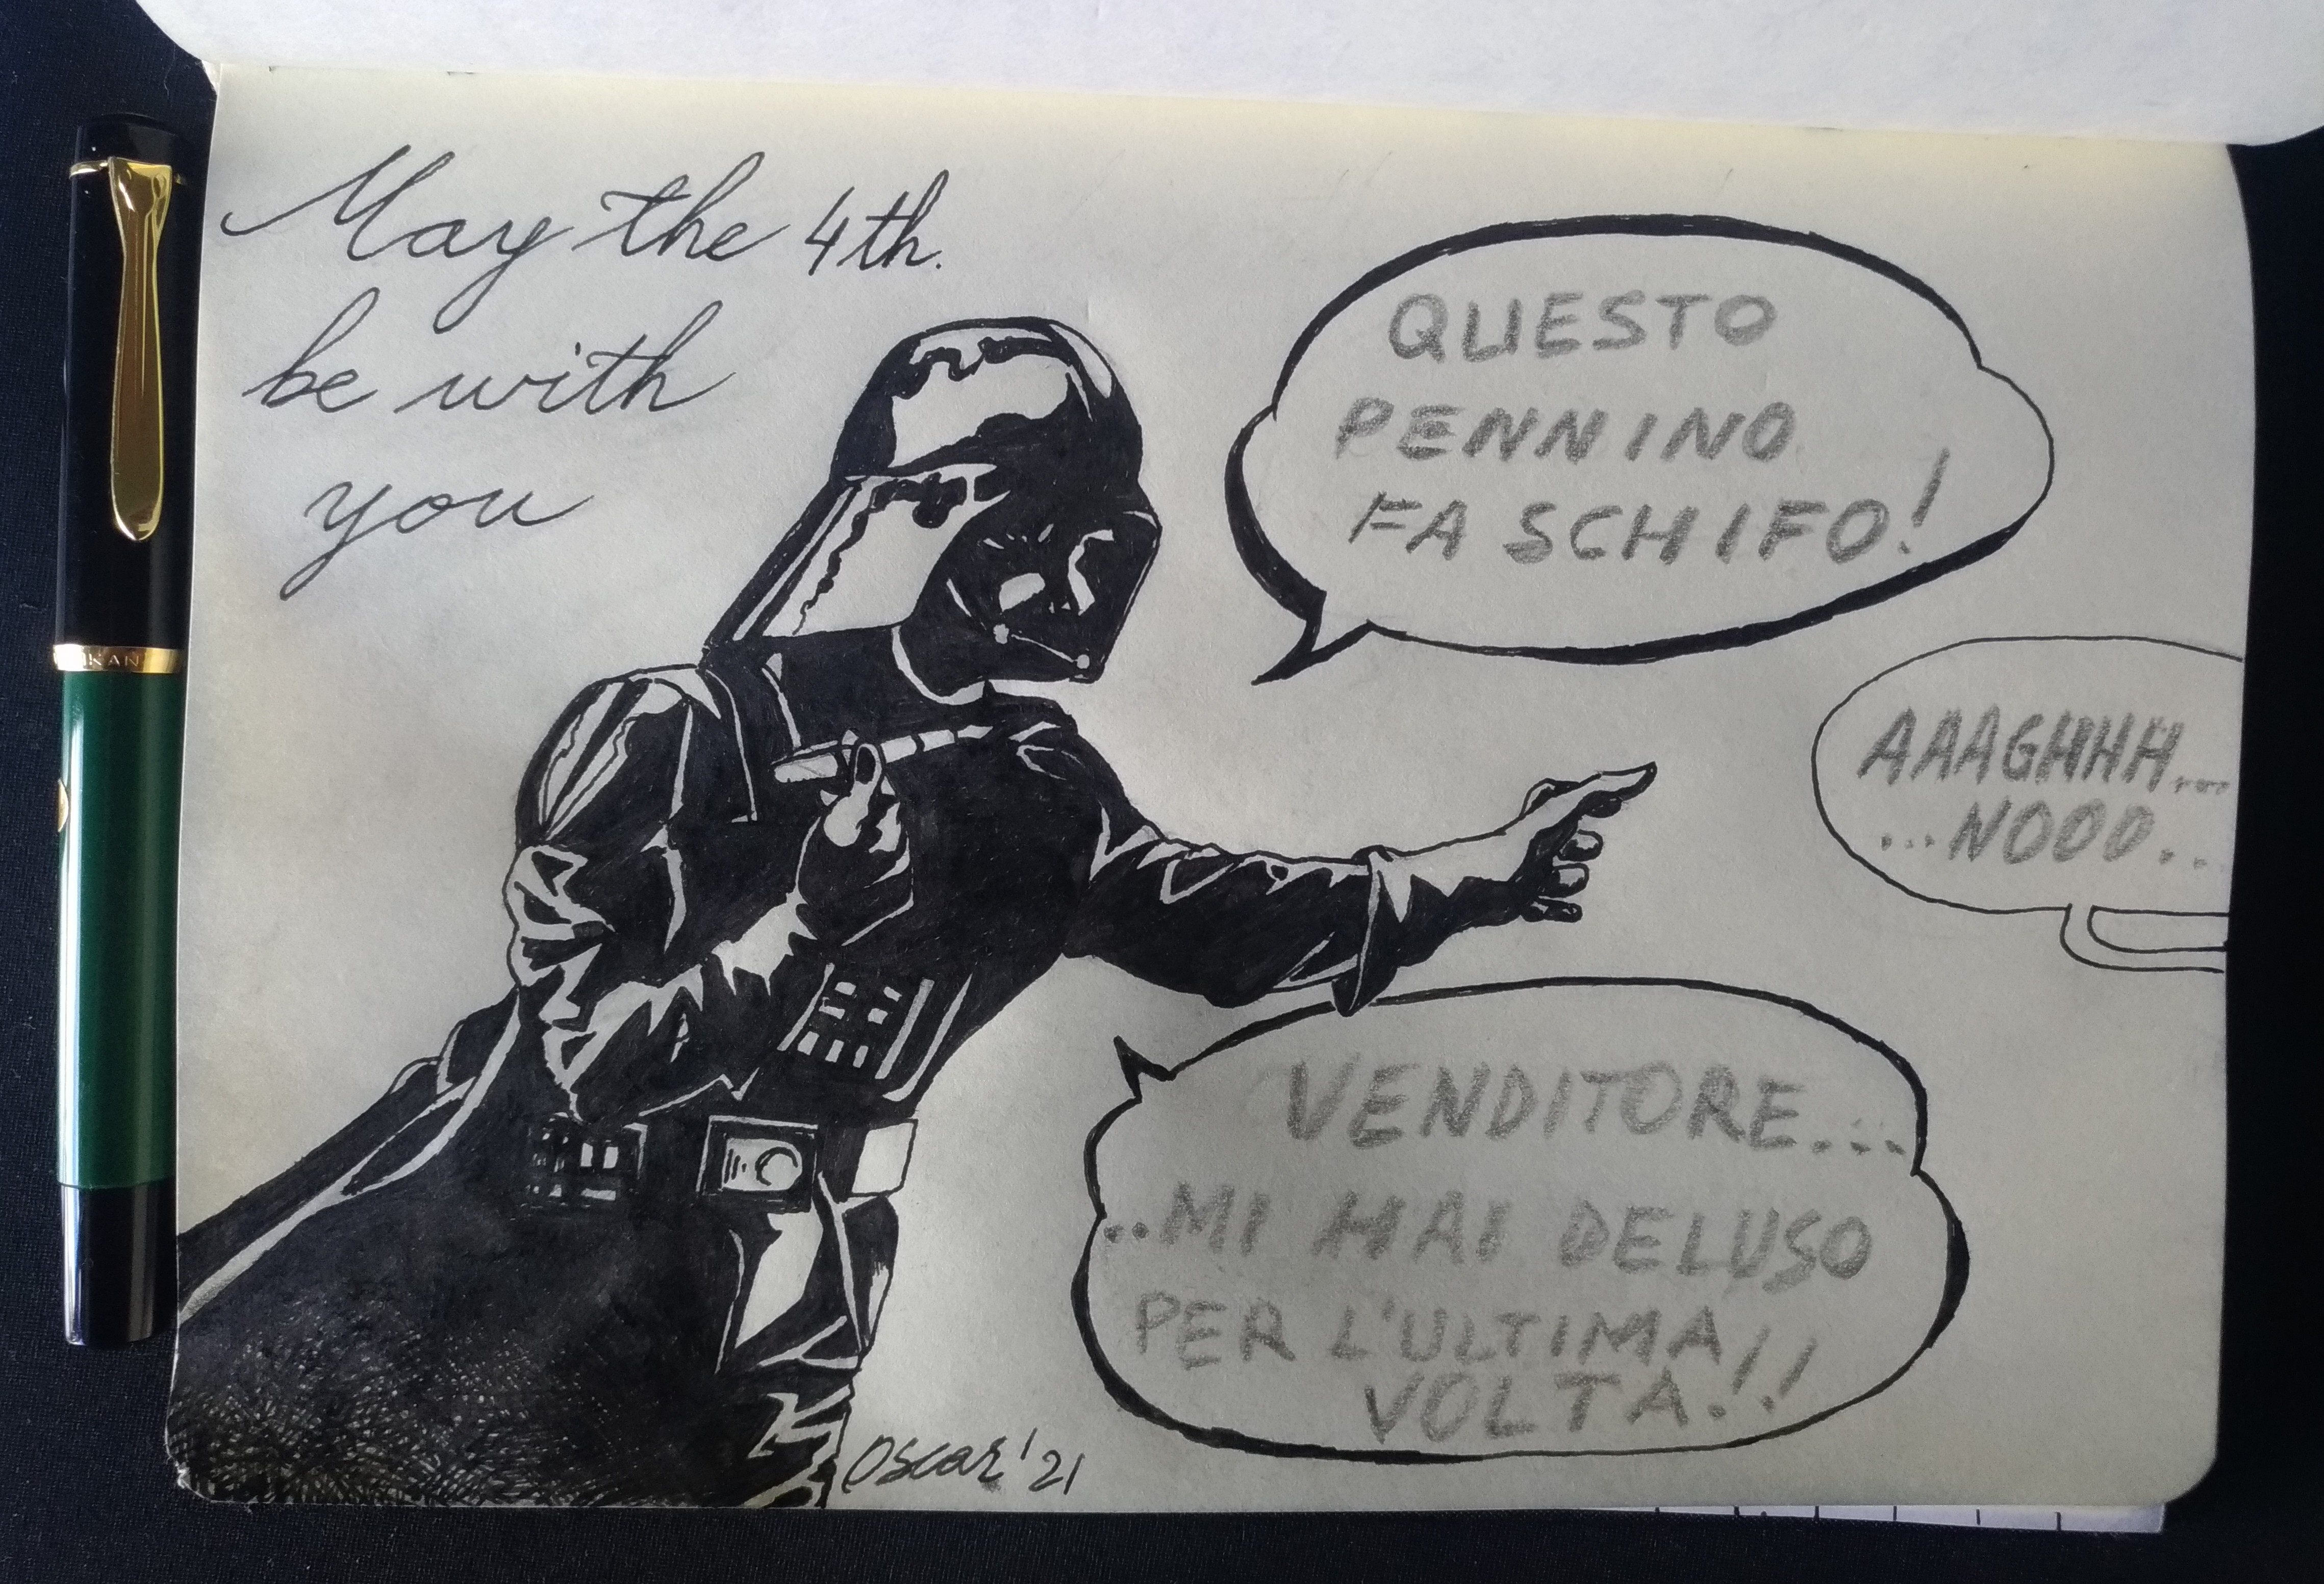 May the 4th.
be with
you
QUESTO
PENNINO
FA SCHIFO!
AAAGHHH...
...NOOO..
VENDITORE...
..MI HAI DELUSO
PER L'ULTIMA
VOLTA!!
Oscar '21
IKAN